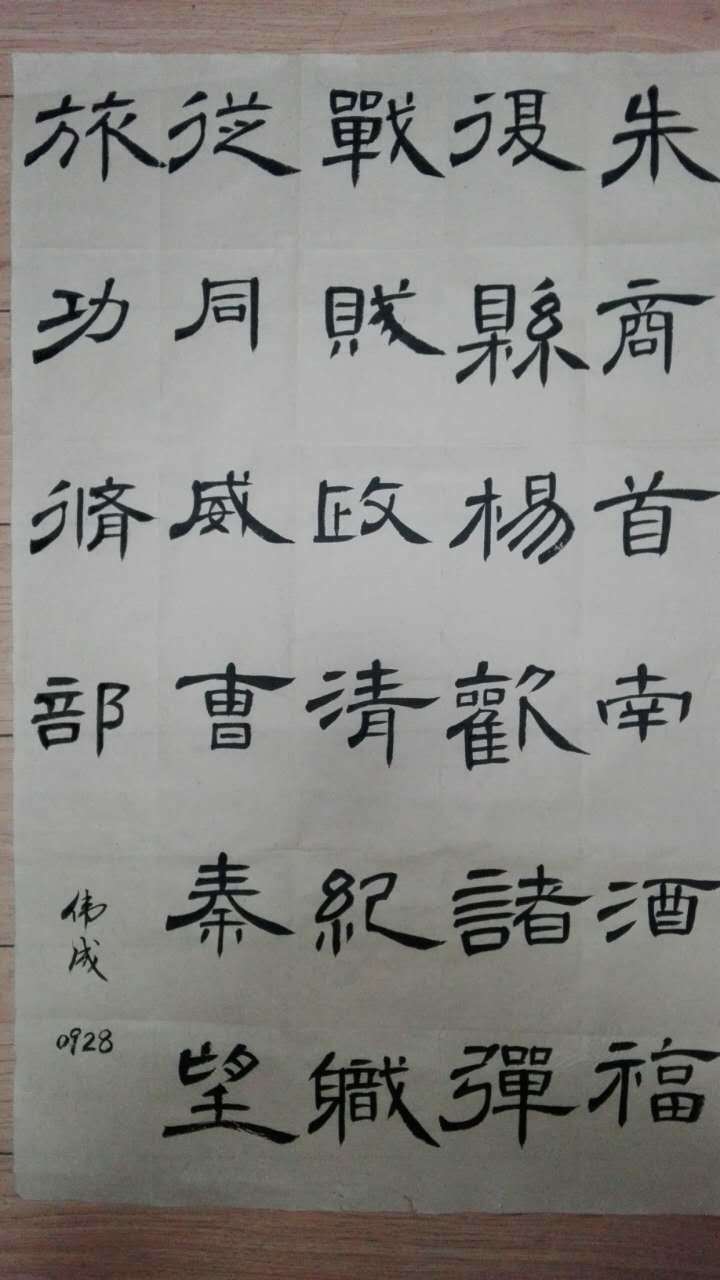 朱商首南酒福
復縣楊歡諸彈
戰賤政清紀職
從同威曹秦望
旅功脩部
伟成
0928